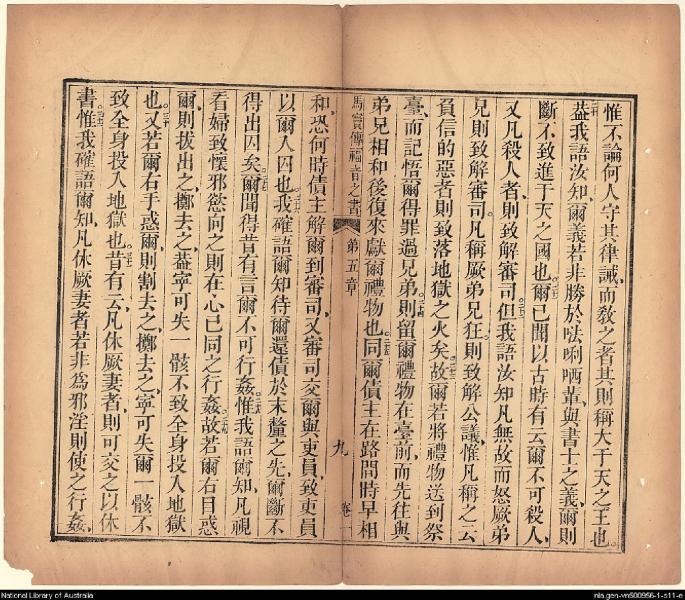 惟不論何人守其律誡、而敎之者其則稱大于天之王也
葢我語汝知、爾義若非勝於㕸唎哂輩、與書士之義、爾則
斷不致進于天之國也。爾已聞以古時有云爾不可殺人、
又凡殺人者、則致解審司。但我語汝知凡無故而怒厥弟
兄則致解審司。凡稱厥弟兄狂、則致解公議、惟凡稱之云
負信的惡者則致落地獄之火矣。故爾若將禮物送到祭
臺、而記悟爾得罪過兄弟、則留爾禮物在臺前、而先往與
弟兄相和後復來獻爾禮物也。同爾債主在路間時早相
馬竇傳福音之書 第五章 九 卷一
和、恐何時債主解爾到審司、又審司交爾與吏員、致吏員
以爾人囚也。我確語爾知待爾還債於末釐之先、爾斷不
得出囚矣。爾聞得昔有言爾不可行姦。惟我語爾知凡視
看婦致懷邪慾向之則在心已同之行姦。故若爾右目惑
爾、則拔出之、擲去之、葢寧可失一骸不致全身投入地獄
也。又若爾右手惑爾、則割去之、擲去之、寧可失爾一骸不
致全身投入地獄也。昔有云、凡休厥妻者、則可交之以休
書惟我確語爾知凡休厥妻者若非為邪淫則使之行姦、
National Library of Australia
nla.gen-vn500956-1-s11-e